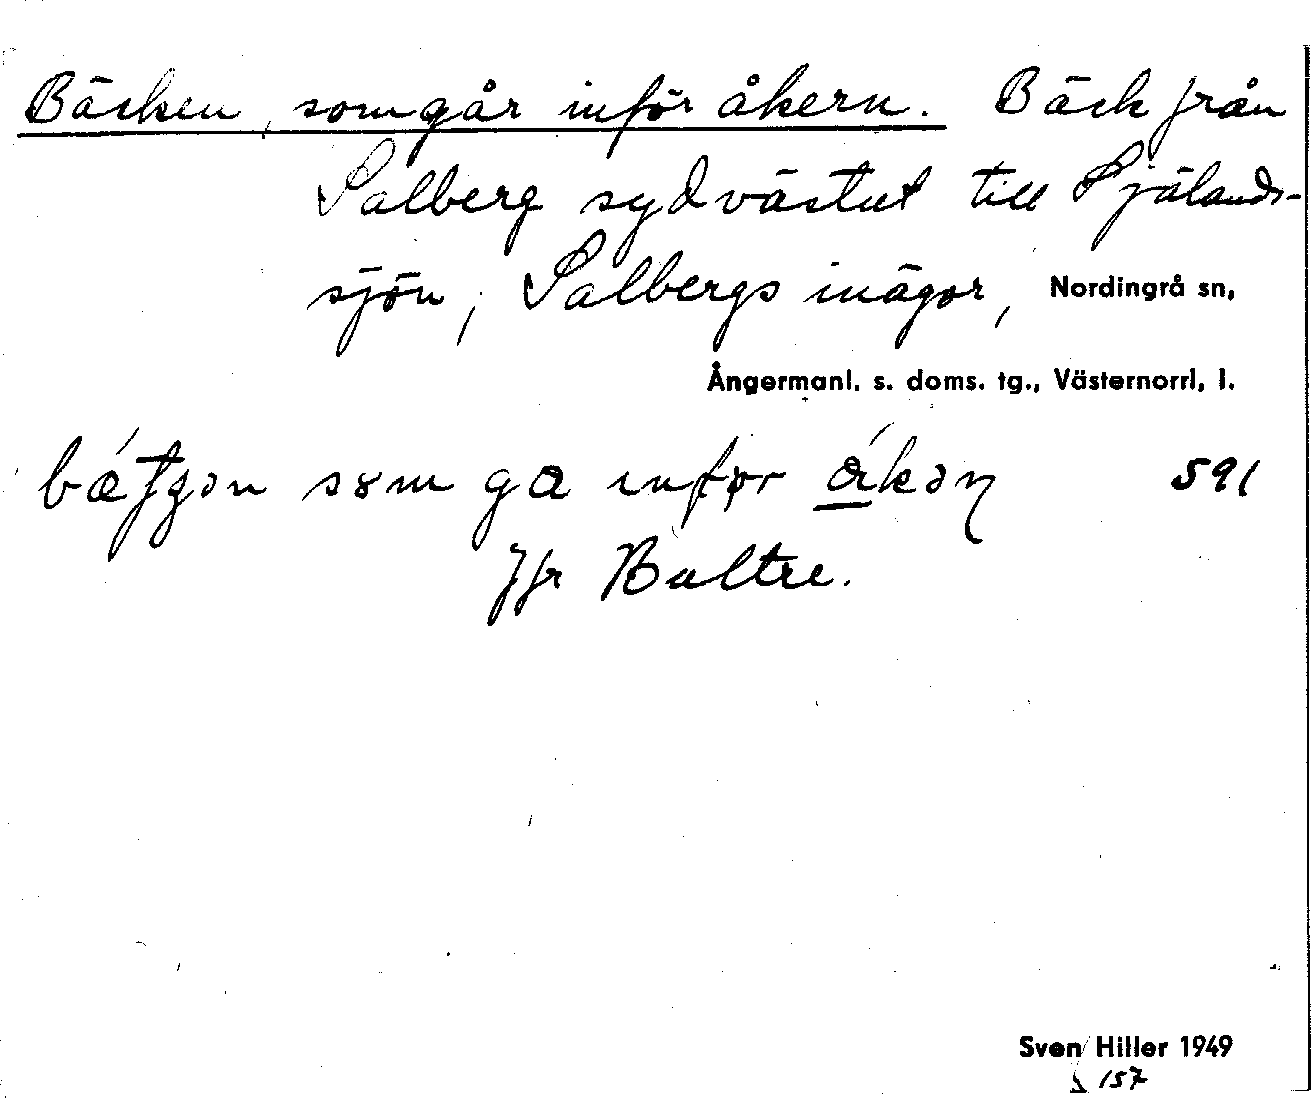 Bäcken, som går inför åkern. Bäck från
Salberg sydvästut till Själands-
sjön, Salbergs inägor, Nordingrå sn,
Ångermanl. s. doms. tg., Västernorrl. l.
som ga 591
Jfr Baltre.
Sven Hiller 1949
s 157